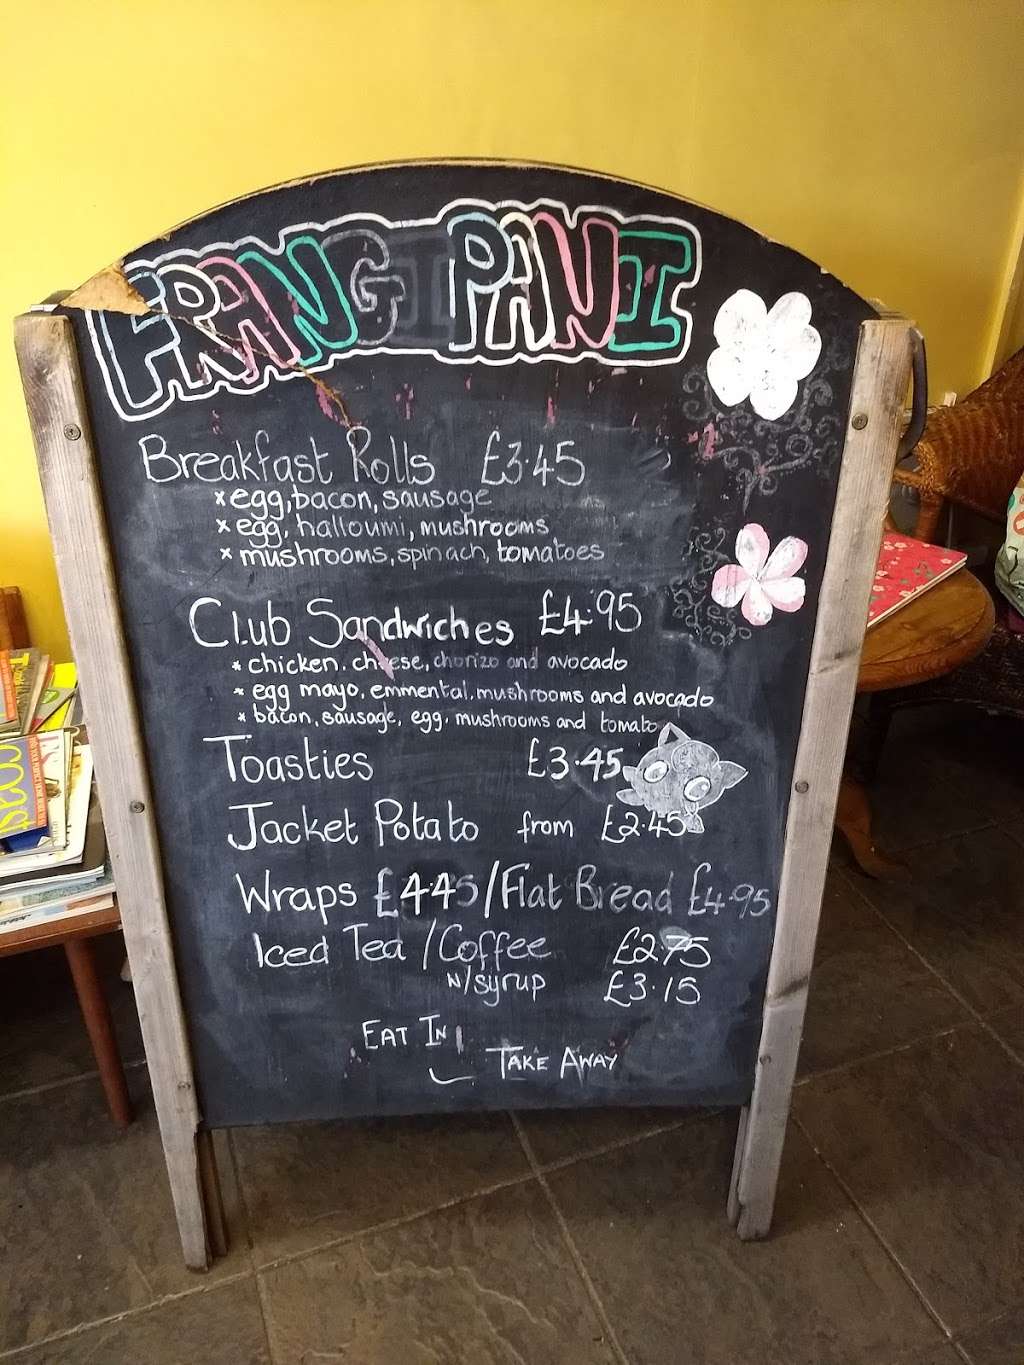 FRANGIPANI
Breakfast Rolls £3.45
x egg, bacon, sausage
x egg, halloumi, mushrooms
x mushrooms, spinach, tomatoes
Club Sandwiches £4.95
x chicken, cheese, chorizo and avocado
x egg mayo, emmental, mushrooms and avocado
x bacon, sausage, egg, mushrooms and tomato
Toasties £3.45
Jacket Potato from £2.45
Wraps £4.45/Flat Bread £4.95
Iced Tea/Coffee £2.75
w/syrup £3.15
EAT IN
TAKE AWAY